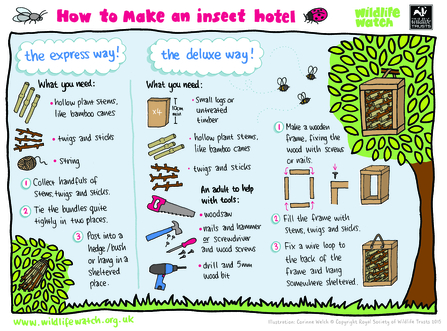 How to Make an insect hotel
wildlife
watch
the
Wildlife
TRUSTS
the express way!
What you need:
• hollow plant stems,
like bamboo canes
• twigs and sticks
• string
1 Collect handfuls of
stems, twigs and sticks.
2 Tie the bundles quite
tightly in two places.
3 Post into a
hedge/bush
or hang in a
sheltered
place.
the deluxe way!
What you need:
x4
10cm
min
• Small logs or
untreated
timber
• hollow plant stems,
like bamboo canes
• twigs and sticks
An adult to help
with tools:
• woodsaw
• nails and hammer
or screwdriver
and wood screws
• drill and 5mm
wood bit
1 Make a wooden
frame, fixing the
wood with screws
or nails.
2 Fill the frame with
stems, twigs and sticks.
3 Fix a wire loop to
the back of the
frame and hang
somewhere sheltered.
www.wildlifewatch.org.uk
Illustration: Corinne Welch © Copyright Royal Society of Wildlife Trusts 2015